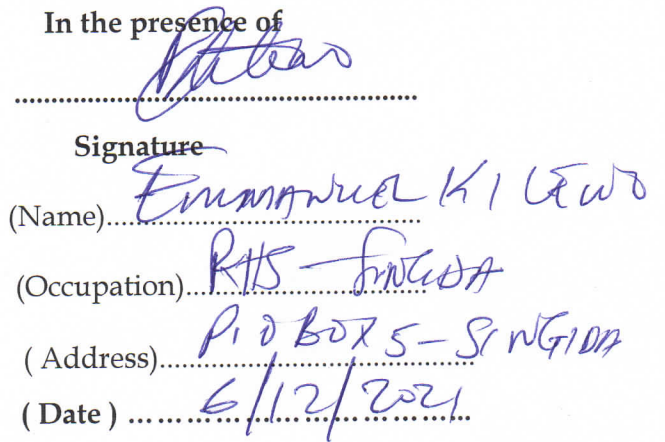 In the presence of
Signature
(Name)....EMMANUEL KILEWO
(Occupation)....RHS - SINGIDA
( Address)....P.O BOX 5 - SINGIDA
( Date ) ....6/12/2021